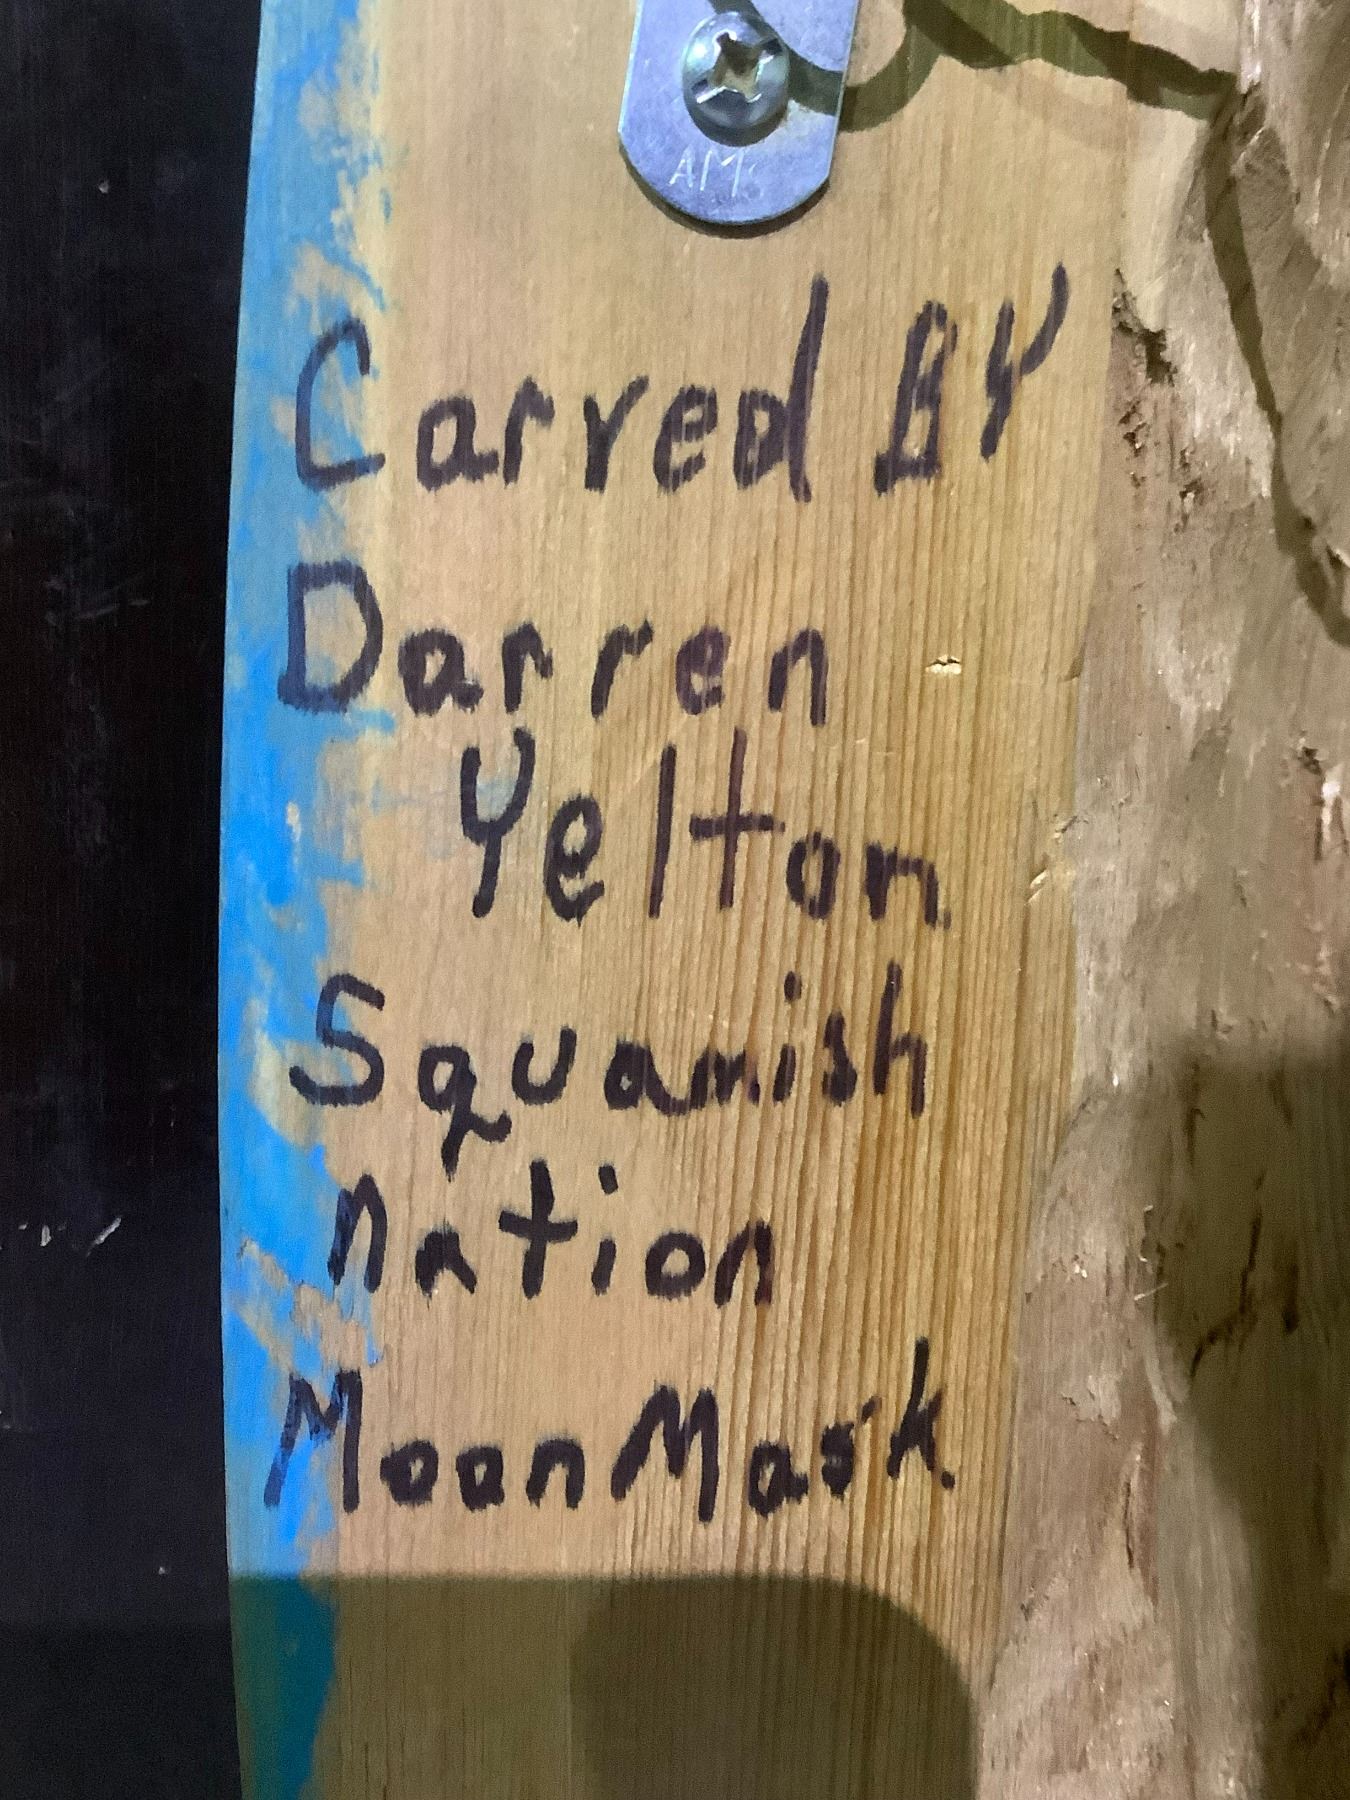 AMS
Carved BY
Darren
Yelton
Squamish
nation
MoonMask